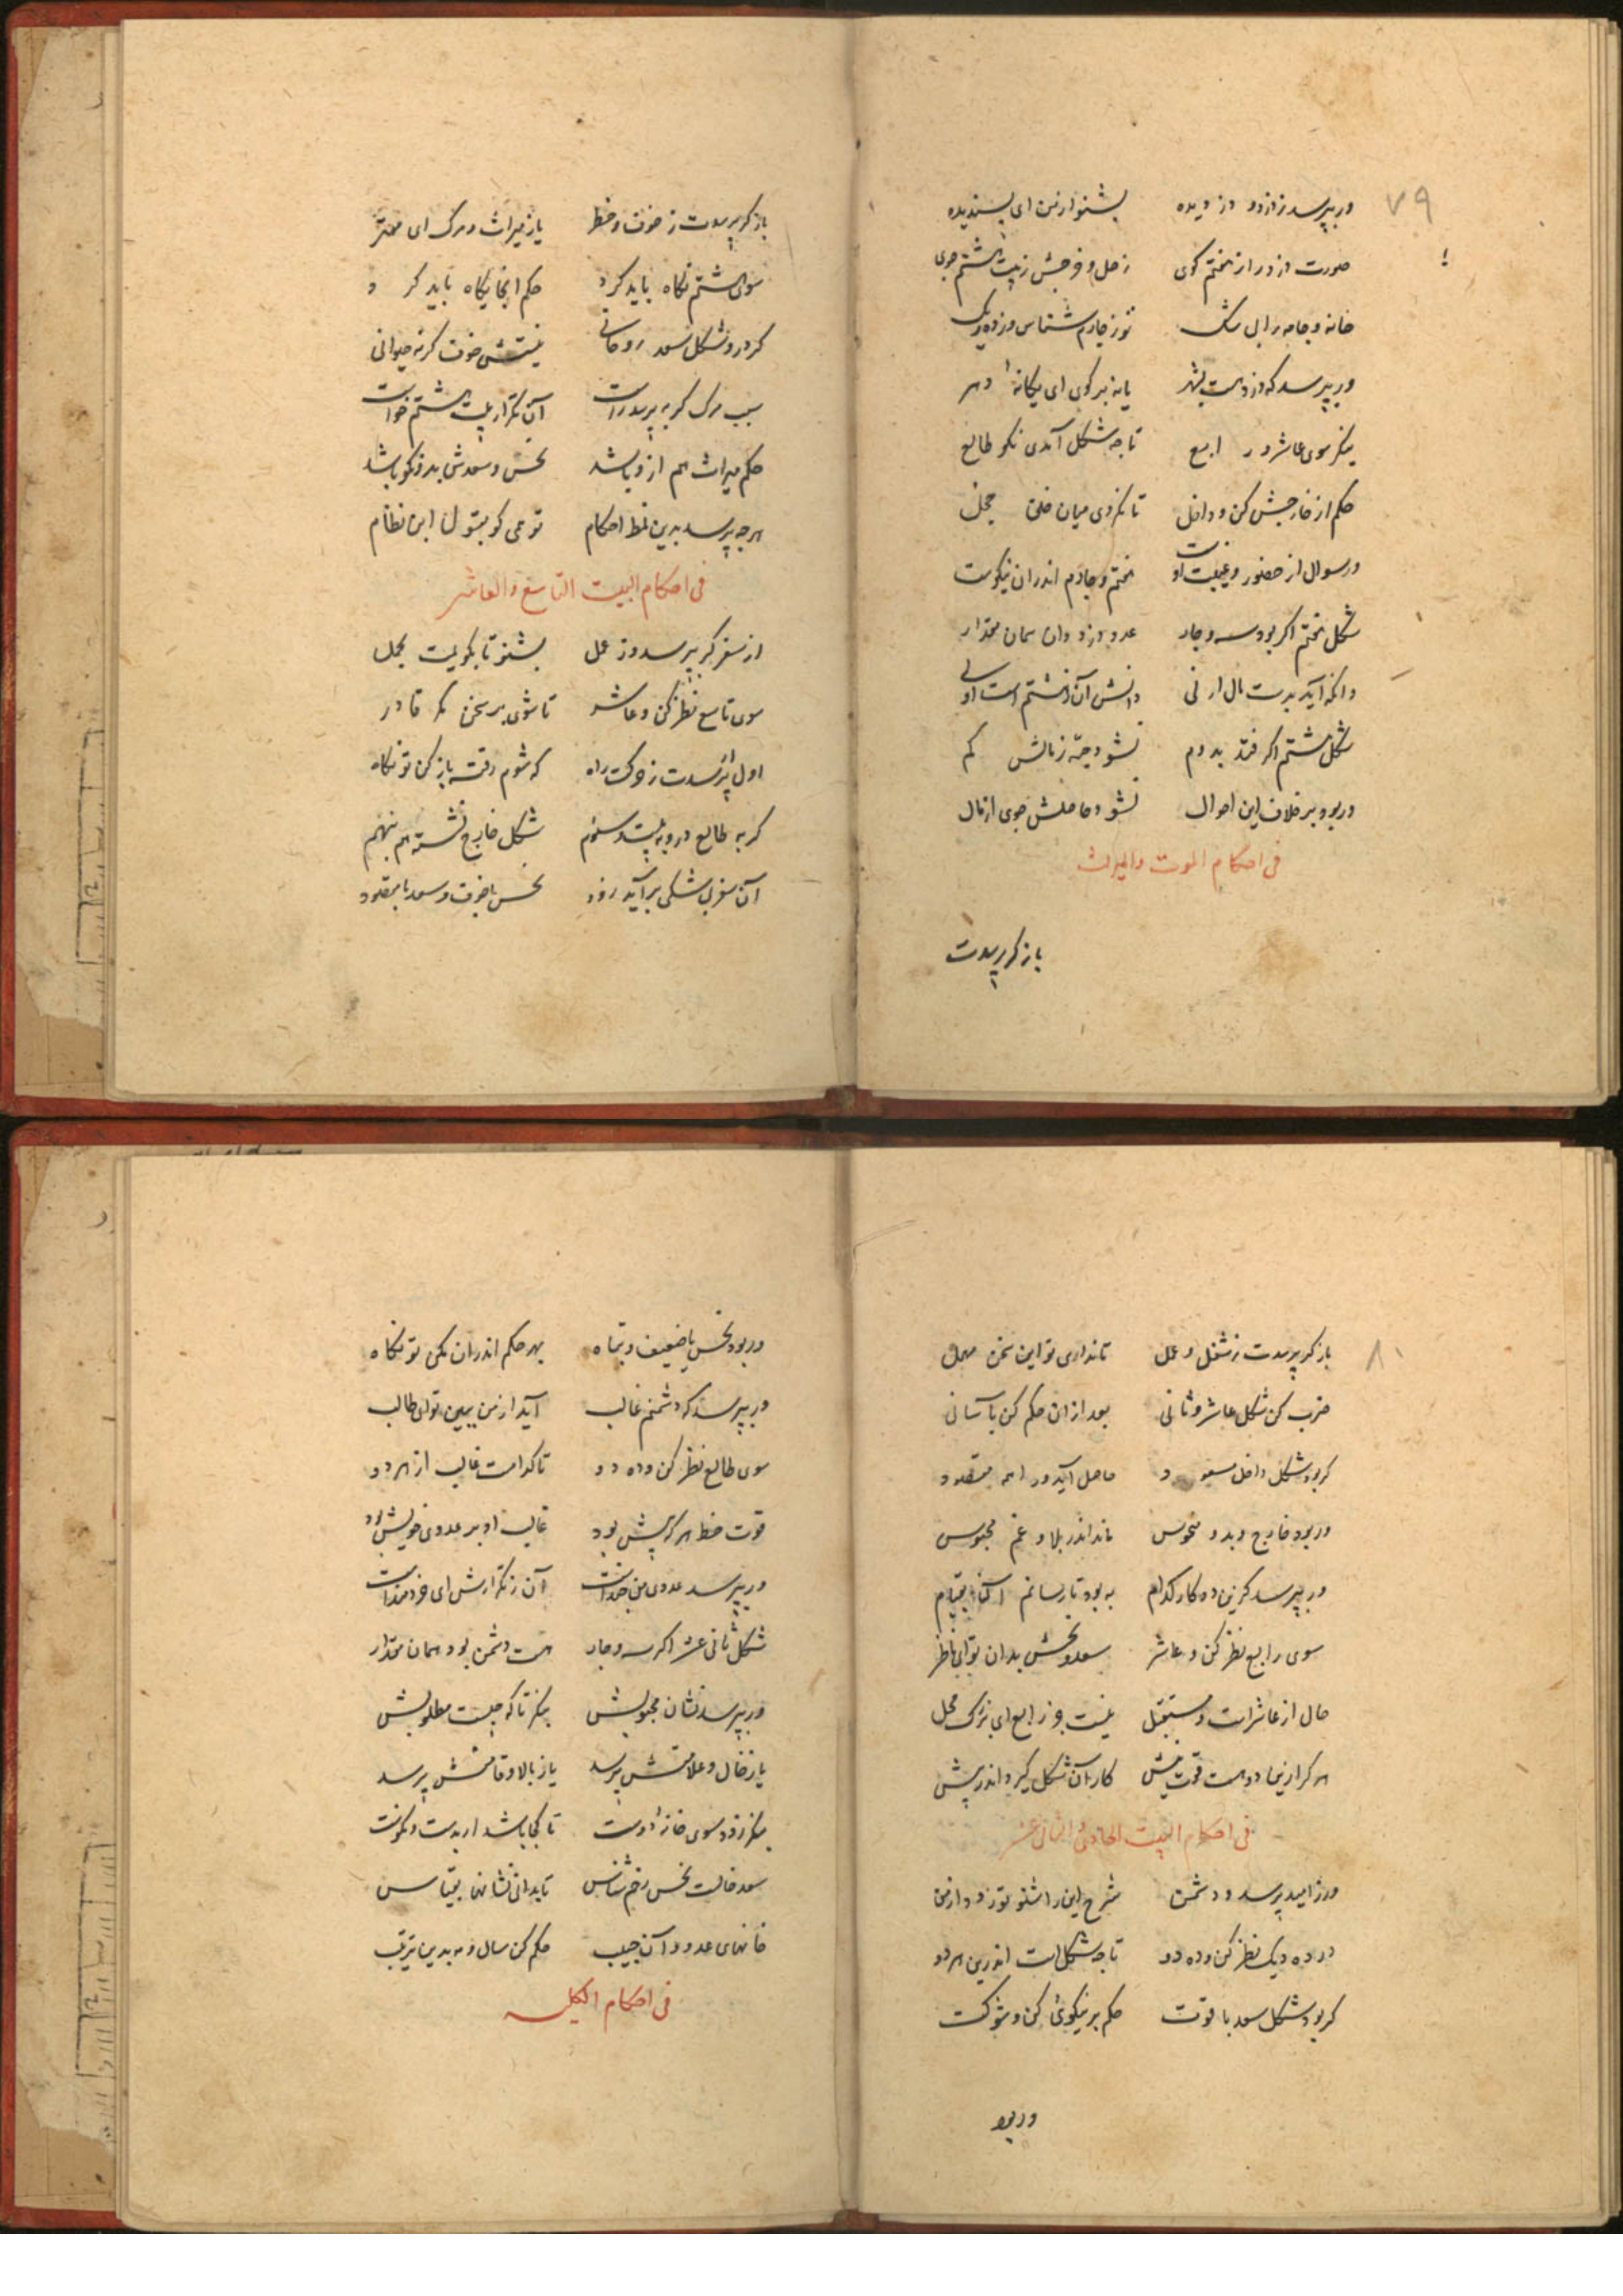 ۷۹
ور بپرسد ز دزد و دزدیده بشنو از من ای پسندیده
صورت دزد را ز هفتم کوی زحل و فرحش ز بیت هشتم جوی
خانه و جامه را بی شک تو ز چارم شناس و ز ده و یک
ور بپرسد که دزد هست بشهر یا نه بر کوی ای یکانهٔ دهر
بنکر سوی عاشر و رابع تا چه شکل آمدی نکو طالع
حکم از خارجش کن و داخل تا نکردی میان خلق خجل
ور سوال از حضور و غیبت اوست هفتم و چارم اندران نیکوست
شکل هفتم اکر بود سه و چار عدد دزد دان همان مقدار
وانکه آید بدست مال ار نی دانش آن ز هشتم است اولی
شکل هشتم اکر فتد بدوم نشود حبّه ز مالش کم
ور بود بر خلاف این احوال نشود حاصلش جوی از مال
فی احکام الموت والمیراث
باز کر پرسدت
باز کر پرسدت ز خوف و خطر یا ز میراث و مرک ای مهتر
سوی هشتم نکاه باید کرد حکم انجایکاه باید کرد
کر درو شکل سعد روحانی نیستش خوف کرنه حیوانی
سبب مرک کر بپرسد راست آن ز تکرار بیت هشتم خواست
حکم میراث هم ازو باشد نحس و سعدش بد و نکو باشد
هر چه پرسد بدین نمط احکام تو همی کو بقول این نظام
فی احکام البیت التاسع والعاشر
از سفر کر بپرسد و ز عمل بشنو تا بکویمت مجمل
سوی تاسع نظر کن و عاشر تا شوی بر سخن مکر قادر
اول ار پرسدت ز حرکت راه که شوم رفته باز کن تو نکاه
کر به طالع درو به بیت سوم شکل خارج نشسته هم بنهم
آن سفر بی شکی برآید زود نحس باخوف و سعد با مقصود
۸۰
باز کر پرسدت ز شغل و عمل تا نداری تو این سخن مهمل
ضرب کن شکل عاشر و ثانی بعد از ان حکم کن بآسانی
کر بود شکل داخل مسعود حاصل آید ورا همه مقصود
ور بود خارج و بد و منحوس ماند اندر بلا و غم محبوس
ور بپرسد کزین دو کار کدام به بود تا رسانم آنرا بتمام
سوی رابع نظر کن و عاشر سعد و نحسش بدان تو ای ناظر
حال از عاشر است و مستقبل نیست جز رابع ای بزرک محل
هر کرا زینها دو هست قوت بیش کار آن شکل کیرد اندر پیش
فی احکام البیت الحادی والثانی عشر
ور ز امید پرسد و دشمن شرح این را شنو تو زود از من
در ده و یک نظر کن و ده دو تا چه شکل است اندرین هر دو
کر بود شکل سعد با قوت حکم بر نیکوئی کن و شوکت
ور بود
ور بود نحس یا ضعیف و تباه بهر حکم اندران مکن تو نکاه
ور بپرسد که دشمنم غالب آید از من ببین تو ای طالب
سوی طالع نظر کن و ده دو تا کدامست غالب از هر دو
قوت خط هر که بیش بود غالب او بر عدوی خویش بود
ور بپرسد عدوی من چنداست آن ز تکرارش ای خردمنداست
شکل ثانی عشر اکر سه و چار هست دشمن بود همان مقدار
ور بپرسد نشان محبوبش بنکر تا که چیست مطلوبش
یا ز خال و علامتش پرسد یا ز بالا و قامتش پرسد
بنکر زود سوی خانهٔ دوست تا کجا باشد ار بدست و نکوست
سعد خالست نحس زخم شناس تا بدانی نشانها بقیاس
خانهای عدو و آن حبیب حکم کن سال و مه بدین ترتیب
فی احکام الکلیه